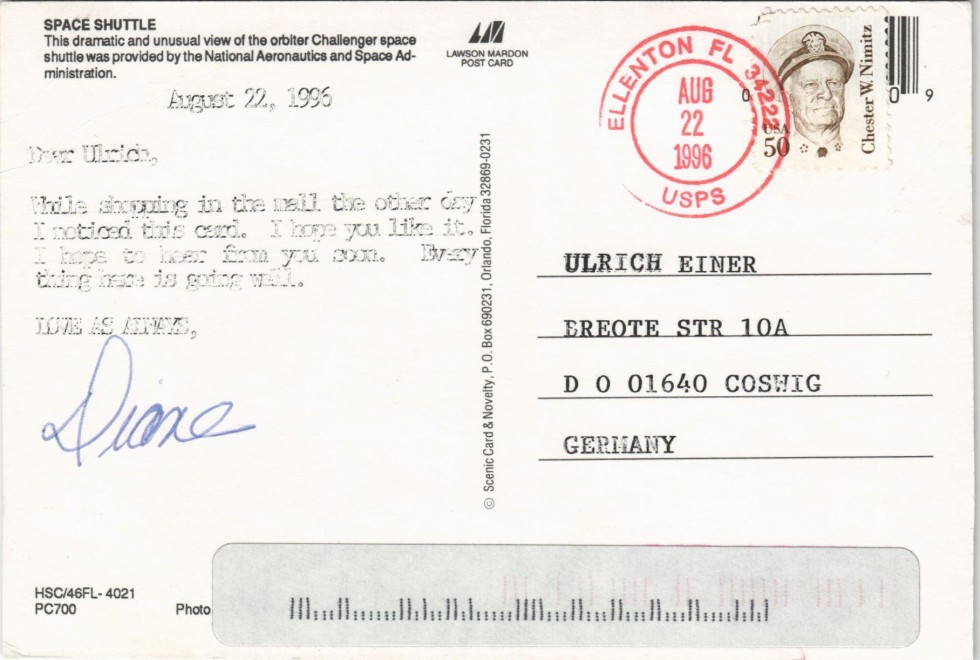 SPACE SHUTTLE
This dramatic and unusual view of the orbiter Challenger space
shuttle was provided by the National Aeronautics and Space Ad-
ministration.
LAWSON MARDON
POST CARD
ELLENTON FL 34222
AUG
22
1996
USPS
USA
50
Chester W. Nimitz
0 0 9
August 22, 1996
Dear Ulrich,
While shopping in the mall the other day
I noticed this card. I hope you like it.
I hope to hear from you soon. Every
thing here is going well.
LOVE AS ALWAYS,
Diane
© Scenic Card & Novelty, P.O. Box 690231, Orlando, Florida 32869-0231
ULRICH EINER
BREOTE STR 10A
D O 01640 COSWIG
GERMANY
HSC/46FL- 4021
PC700
Photo